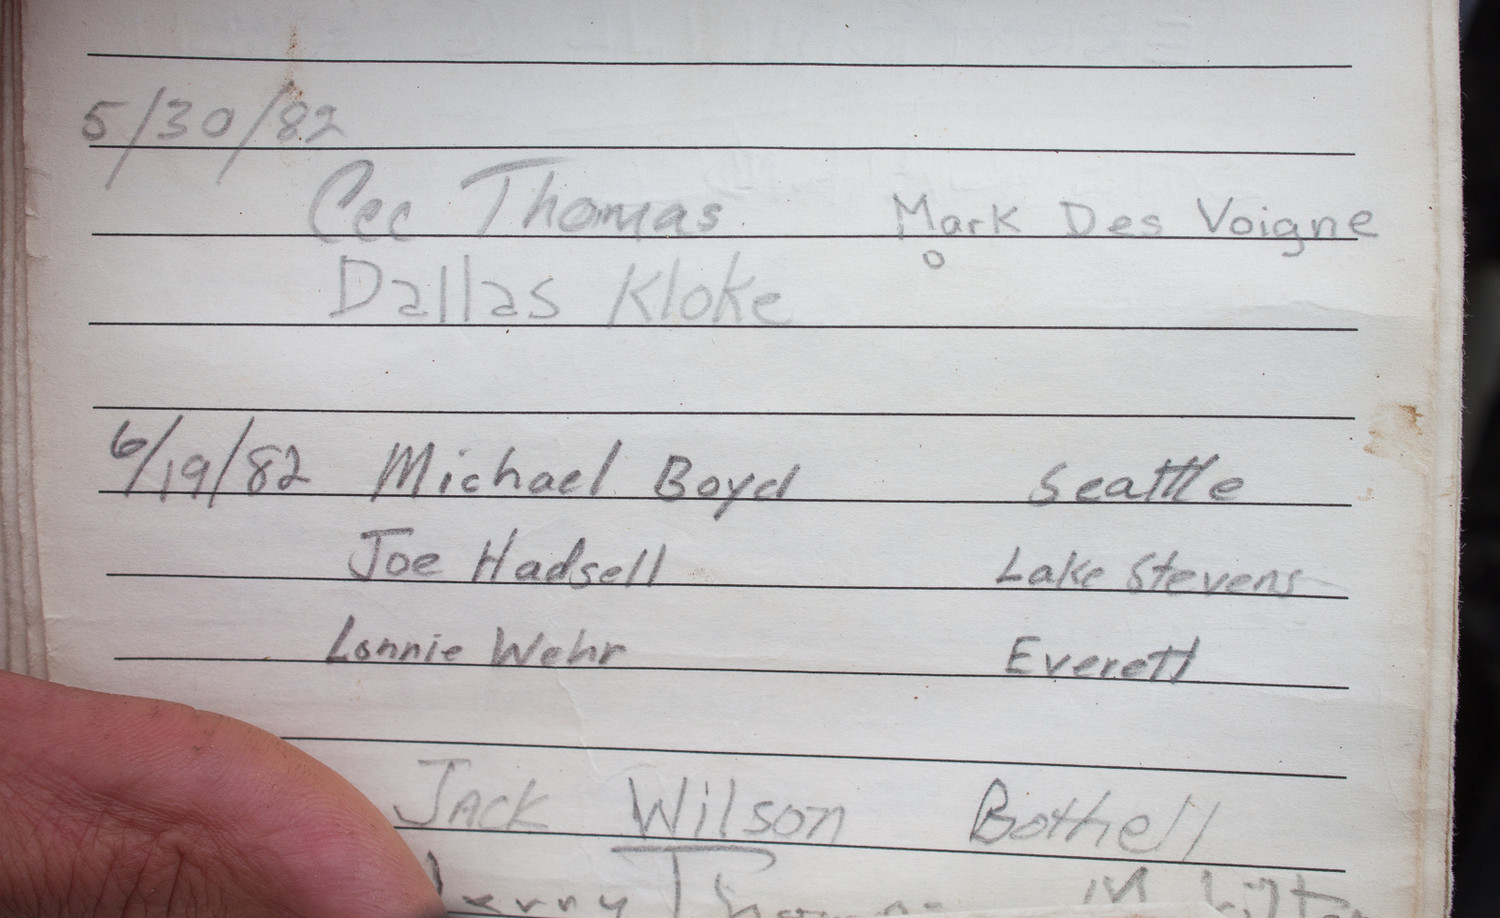 5/30/82
Cec Thomas Mark Des Voigne
Dallas Kloke
6/19/82 Michael Boyd Seattle
Joe Hadsell Lake Stevens
Lonnie Wehr Everett
Jack Wilson Bothell